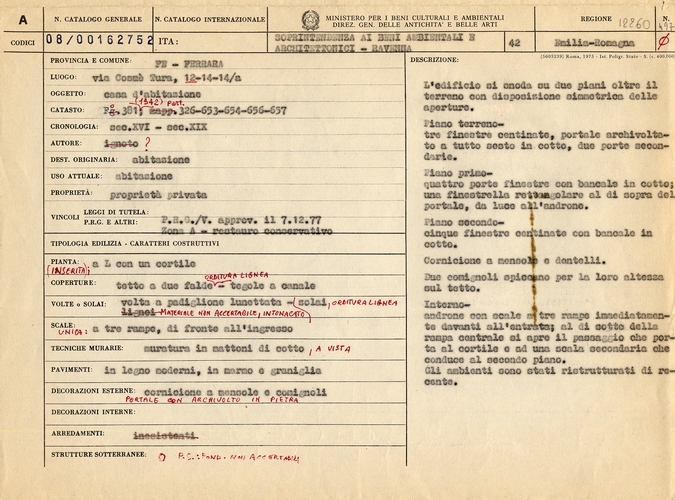 A
N. CATALOGO GENERALE
N. CATALOGO INTERNAZIONALE
MINISTERO PER I BENI CULTURALI E AMBIENTALI
DIREZ. GEN. DELLE ANTICHITA' E BELLE ARTI
REGIONE
12860
N.
CODICI
08/00162752
ITA:
SOPRINTENDENZA AI BENI AMBIENTALI E
ARCHITETTONICI - RAVENNA
42
Emilia-Romagna
PROVINCIA E COMUNE: FE - FERRARA
LUOGO: via Cosmè Tura, 12-14-14/a
OGGETTO: casa d'abitazione
CATASTO: Fg. 381; (1942) Part. mapp. 326-653-654-656-657
CRONOLOGIA: sec.XVI - sec.XIX
AUTORE: ignoto ?
DEST. ORIGINARIA: abitazione
USO ATTUALE: abitazione
PROPRIETÀ: proprietà privata
VINCOLI
LEGGI DI TUTELA:
P.R.G. E ALTRI: P.R.G./V. approv. il 7.12.77
Zona A - restauro conservativo
TIPOLOGIA EDILIZIA - CARATTERI COSTRUTTIVI
PIANTA: a L con un cortile
(INSERITA);
ORDITURA LIGNEA
COPERTURE: tetto a due falde - tegole a canale
VOLTE o SOLAI: volta a padiglione lunettata - (solai, ORDITURA LIGNEA
lignei MATERIALE NON ACCERTABILE, INTONACATO)
SCALE: a tre rampe, di fronte all'ingresso
UNICA:
TECNICHE MURARIE: muratura in mattoni di cotto, A VISTA
PAVIMENTI: in legno moderni, in marmo e graniglia
DECORAZIONI ESTERNE: cornicione a mensole e comignoli
PORTALE CON ARCHIVOLTO IN PIETRA
DECORAZIONI INTERNE:
ARREDAMENTI: inesistenti
STRUTTURE SOTTERRANEE: P.S.: FOND. NON ACCERTABILI
DESCRIZIONE:
(5605239) Roma, 1975 - Ist. Poligr. Stato - S. (c. 400.000)
L'edificio si snoda su due piani oltre il
terreno con disposizione simmetrica delle
aperture.
Piano terreno-
tre finestre centinate, portale archivolta-
to a tutto sesto in cotto, due porte secon-
darie.
Piano primo-
quattro porte finestre con bancale in cotto;
una finestrella rettangolare al di sopra del
portale, da luce all'androne.
Piano secondo-
cinque finestre centinate con bancale in
cotto.
Cornicione a mensole e dentelli.
Due comignoli spiccano per la loro altezza
sul tetto.
Interno-
androne con scale a tre rampe immediatamen-
te davanti all'entrata; al di sotto della
rampa centrale si apre il passaggio che por-
ta al cortile e ad una scala secondaria che
conduce al secondo piano.
Gli ambienti sono stati ristrutturati di re-
cente.